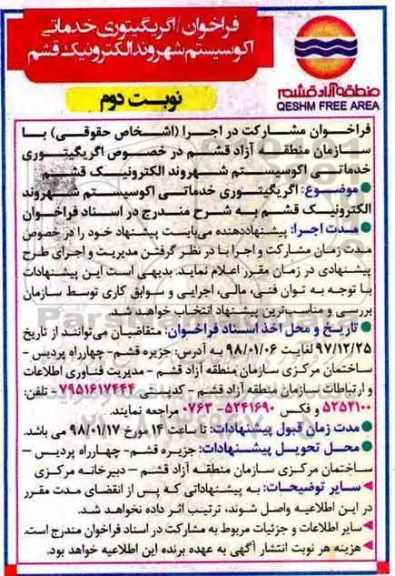 فراخوان/اگریگیتوری خدماتی
اکوسیستم شهروند الکترونیک قشم
منطقه آزاد قشم
QESHM FREE AREA
نوبت دوم
فراخوان مشارکت در اجرا (اشخاص حقوقی) با
سازمان منطقه آزاد قشم در خصوص اگریگیتوری
خدماتی اکوسیستم شهروند الکترونیک قشم
موضوع: اگریگیتوری خدماتی اکوسیستم شهروند
الکترونیک قشم به شرح مندرج در اسناد فراخوان
مدت اجرا: پیشنهاددهنده می‌بایست پیشنهاد خود را در خصوص
مدت زمان مشارکت و اجرا با در نظر گرفتن مدیریت و اجرای طرح
پیشنهادی در زمان مقرر اعلام نماید. بدیهی است این پیشنهادات
با توجه به توان فنی، مالی، اجرایی و سوابق کاری توسط سازمان
بررسی و مناسب‌ترین پیشنهاد انتخاب خواهد شد.
تاریخ و محل اخذ اسناد فراخوان: متقاضیان می‌توانند از تاریخ
۹۷/۱۲/۲۵ لغایت ۹۸/۰۱/۰۶ به آدرس: جزیره قشم- چهارراه پردیس -
ساختمان مرکزی سازمان منطقه آزاد قشم - مدیریت فناوری اطلاعات
و ارتباطات سازمان منطقه آزاد قشم - کدپستی ۷۹۵۱۶۱۷۴۴۴- تلفن:
۵۲۵۲۱۰۰ و فکس ۵۲۴۱۶۹۰-۰۷۶۳ مراجعه نمایند.
مدت زمان قبول پیشنهادات: تا ساعت ۱۴ مورخ ۹۸/۰۱/۱۷ می باشد.
محل تحویل پیشنهادات: جزیره قشم- چهارراه پردیس -
ساختمان مرکزی سازمان منطقه آزاد قشم - دبیرخانه مرکزی
سایر توضیحات: به پیشنهاداتی که پس از انقضای مدت مقرر
در این اطلاعیه واصل شوند، ترتیب اثر داده نخواهد شد.
سایر اطلاعات و جزئیات مربوط به مشارکت در اسناد فراخوان مندرج است.
هزینه هر نوبت انتشار آگهی به عهده برنده این اطلاعیه خواهد بود.